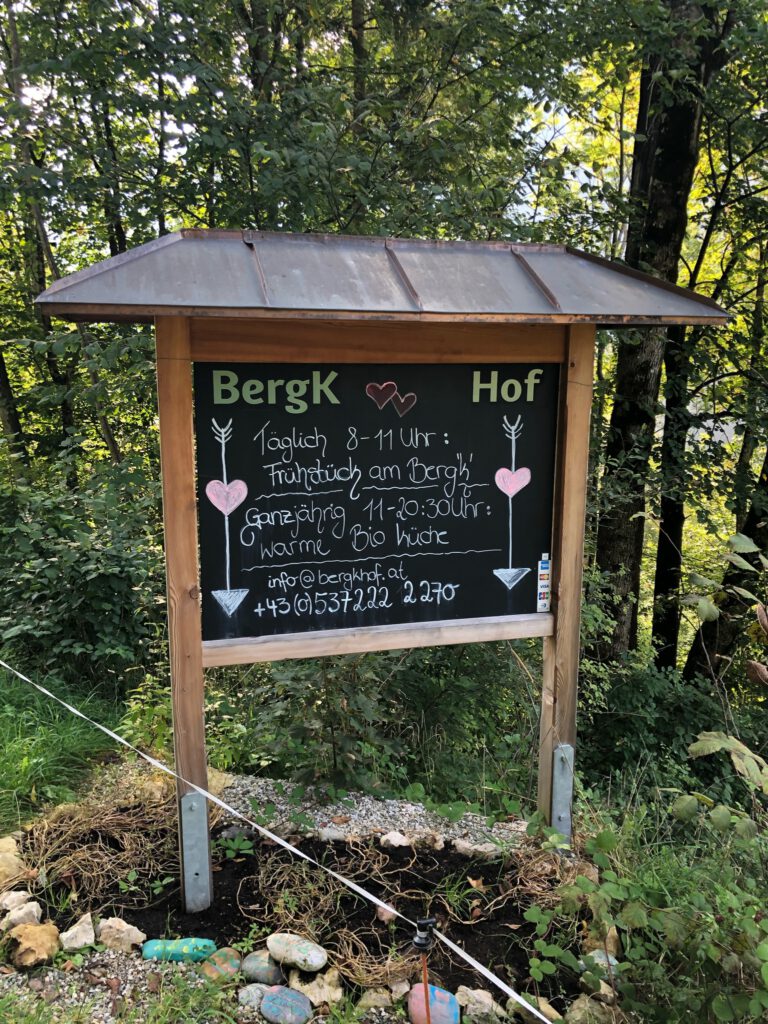 BergK Hof
Täglich 8-11 Uhr:
Frühstück am Berg'k'
Ganzjährig 11-20:30Uhr:
warme Bio Küche
info@bergkhof.at
+43(0)537222 2270
VISA